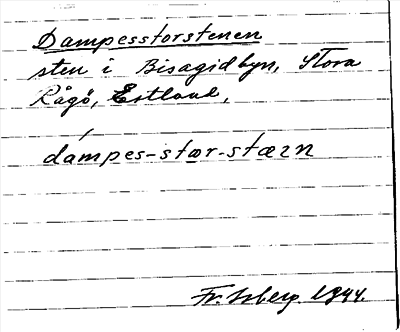 Dampesstorstenen
sten i Bisagidbyn, Stora
Rågö, Estland,
dámpes-stær-stæzn
Fr. Isberg 1944.